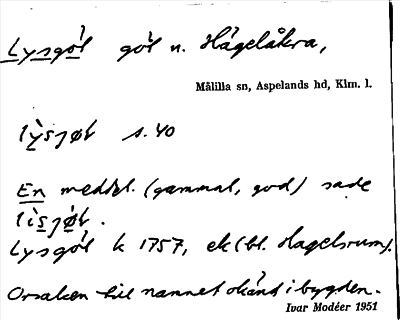 Lysgöl göl n. Hagelåkra,
Målilla sn, Aspelands hd, Klm. l.
lỳsjøl s. 40
En meddel. (gammal, god) sade
lìsjøl.
Lysgöl k 1757, ek (bl. Hagelsrum).
Orsaken till namnet okänd i bygden.
Ivar Modéer 1951